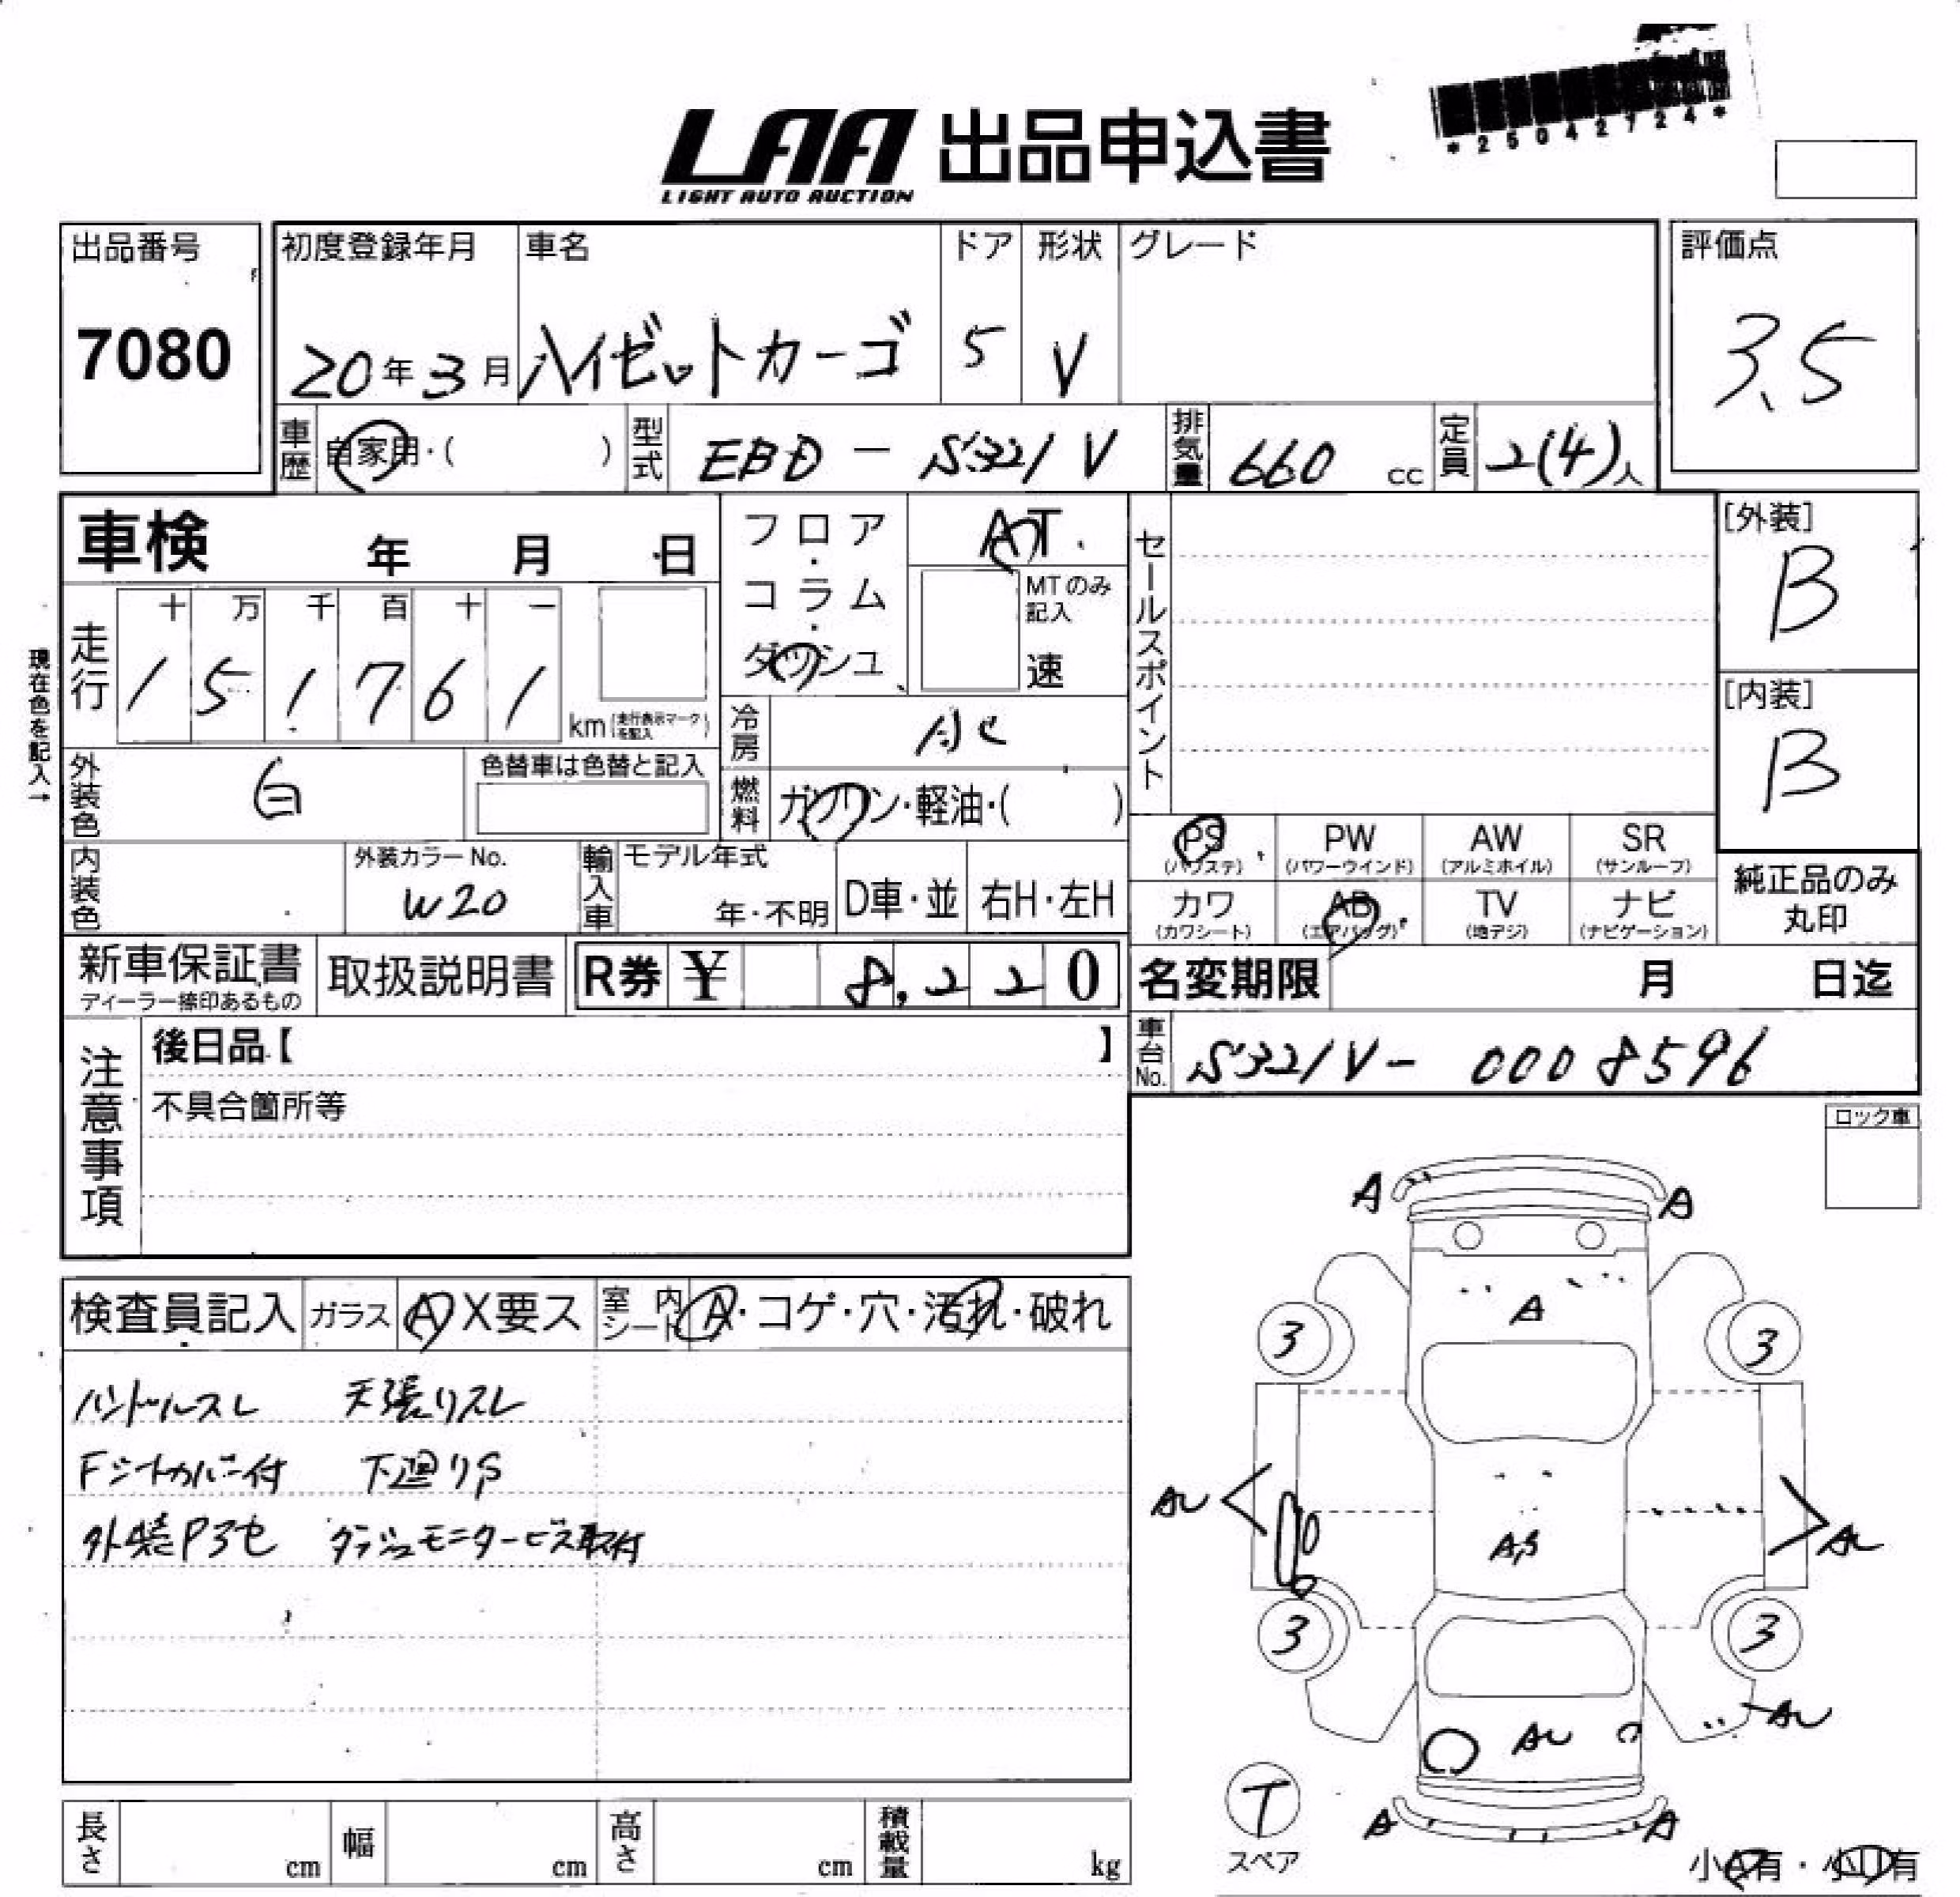 *25042724*
LAA 出品申込書
LIGHT AUTO AUCTION
出品番号
7080
初度登録年月
20年3月
車名
ハイゼットカーゴ
ドア
5
形状
V
グレード
評価点
3.5
車歴
自家用・( )
型式
EBD - S321V
排気量
660 cc
定員
2(4)人
車検 年 月 日
フロア・コラム・ダッシュ
AT
MTのみ記入
速
セールスポイント
[外装]
B
[内装]
B
現在色を記入→
走行
十 万 千 百 十 一
1 5 1 7 6 1
km (走行表示マークを記入)
冷房
AC
外装色
白
色替車は色替と記入
燃料
ガソリン・軽油・( )
内装色
外装カラーNo.
W20
輸入車
モデル年式
年・不明
D車・並
右H・左H
PS
(パワステ)
PW
(パワーウインド)
AW
(アルミホイル)
SR
(サンルーフ)
カワ
(カワシート)
AB
(エアバッグ)
TV
(地デジ)
ナビ
(ナビゲーション)
純正品のみ
丸印
新車保証書
ディーラー捺印あるもの
取扱説明書
R券 ¥ 8,220
名変期限 月 日迄
車台No.
S321V- 0008596
注意事項
後日品【 】
不具合箇所等
ロック車
検査員記入
ガラス
A X要ス
室内シート
A・コゲ・穴・汚れ・破れ
ハンドルスレ 天張リスレ
Fシートカバー付 下廻りS
外装Pスセ ダッシュモニタービス取付
A A
A
3 3
AU AU
A,S
3 3
AU AU
T
スペア
A A
小A有・小U有
長さ cm
幅 cm
高さ cm
積載量 kg